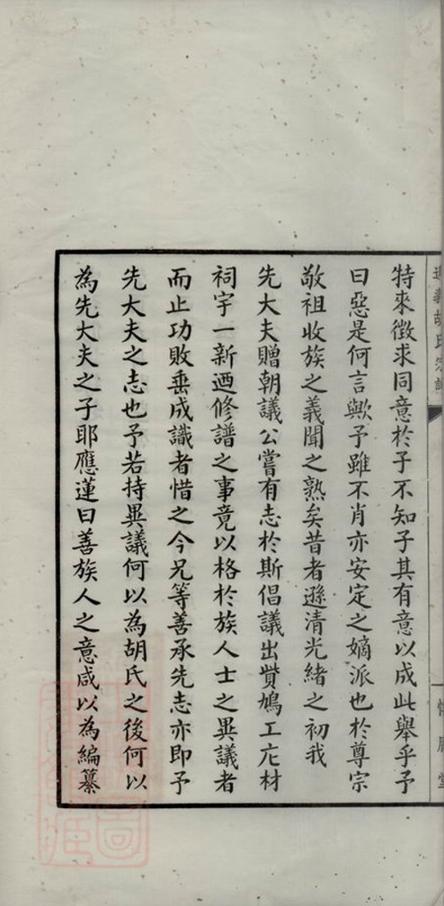 特來徵求同意於子不知子其有意以成此舉乎予
曰惡是何言歟予雖不肖亦安定之嫡派也於尊宗
敬祖收族之義聞之熟矣昔者遜清光緒之初我
先大夫贈朝議公嘗有志於斯倡議出貲鳩工庀材
祠宇一新迺修譜之事竟以格於族人士之異議者
而止功敗垂成識者惜之今兄等善承先志亦即予
先大夫之志也予若持異議何以為胡氏之後何以
為先大夫之子耶應蓮曰善族人之意咸以為編纂